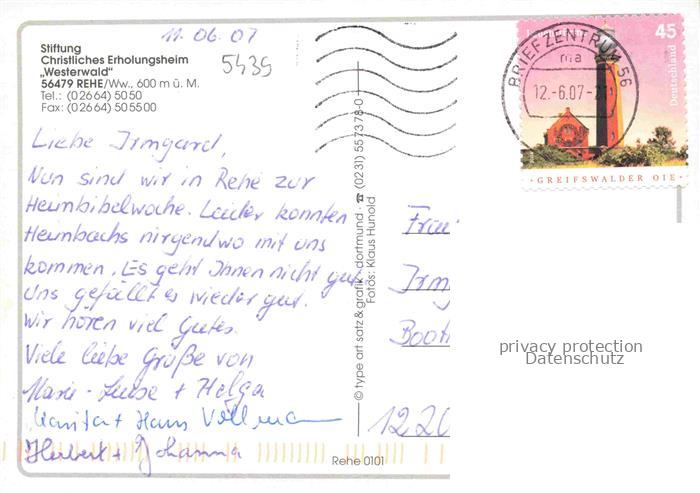 11.06.07
5439
Stiftung
Christliches Erholungsheim
„Westerwald"
56479 REHE/Ww., 600 m ü. M.
Tel.: (02664) 5050
Fax: (02664) 505500
Liebe Irmgard,
Nun sind wir in Rehe zur
Heimbibelwoche. Leider konnten
Heimbachs nirgendwo mit uns
kommen. Es geht Ihnen nicht gut.
Uns gefällt es wieder gut.
Wir hören viel Gutes.
Viele liebe Grüße von
Marie-Luise + Helga
Hans
Herbert + Johanna
© type art satz & grafik · dortmund · ☎ (0231) 557378-0
Fotos: Klaus Hunold
Rehe 0101
BRIEFZENTRUM 56
ma
12.-6.07-2
45
Deutschland
GREIFSWALDER OIE
Frau
Irm
Booth
1220
privacy protection
Datenschutz